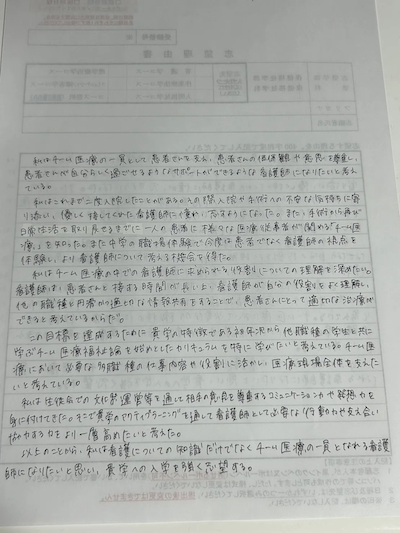 私はチーム医療の一員として患者さんを支え、患者さんの価値観や意思を尊重し、
患者さんが自分らしく過ごせるようなサポートができるような看護師になりたいと考え
ている。
私はこれまで二度入院したことがある。その際入院や手術への不安な気持ちに寄
り添い、優しく接してくれた看護師に憧れ、志すようになった。また、手術から再び
日常生活を取り戻せるまでに一人の患者に様々な医療従事者が関わる「チーム医
療」を知った。また中学の職場体験で今度は患者でなく看護師の視点を
体験し、より看護師について考える機会を得た。
私はチーム医療の中での看護師に求められる役割についての理解を深めたい。
看護師は患者さんと接する時間が長い上、看護師が自分の役割をよく理解し、
他の職種と円滑かつ適切な情報共有をすることで、患者さんにとって適切な治療が
できると考えているからだ。
この目標を達成するために貴学の特徴である初年次から他職種の学生と共に
学ぶチーム医療福祉論を始めとしたカリキュラムを特に学びたいと考えている。チーム医
療において必要な多職種の仕事内容や役割に活かし、医療現場全体を支えた
いと考えている。
私は生徒会での文化祭運営等を通して相手の意見を尊重するコミュニケーション力や発想力を
身に付けてきた。そこで貴学のアクティブラーニングを通して看護師として必要な行動力や支え合い
協力する力をより一層高めたいと考えた。
以上のことから、私は看護についての知識だけでなくチーム医療の一員となれる看護
師になりたいと思い、貴学への入学を強く志望する。